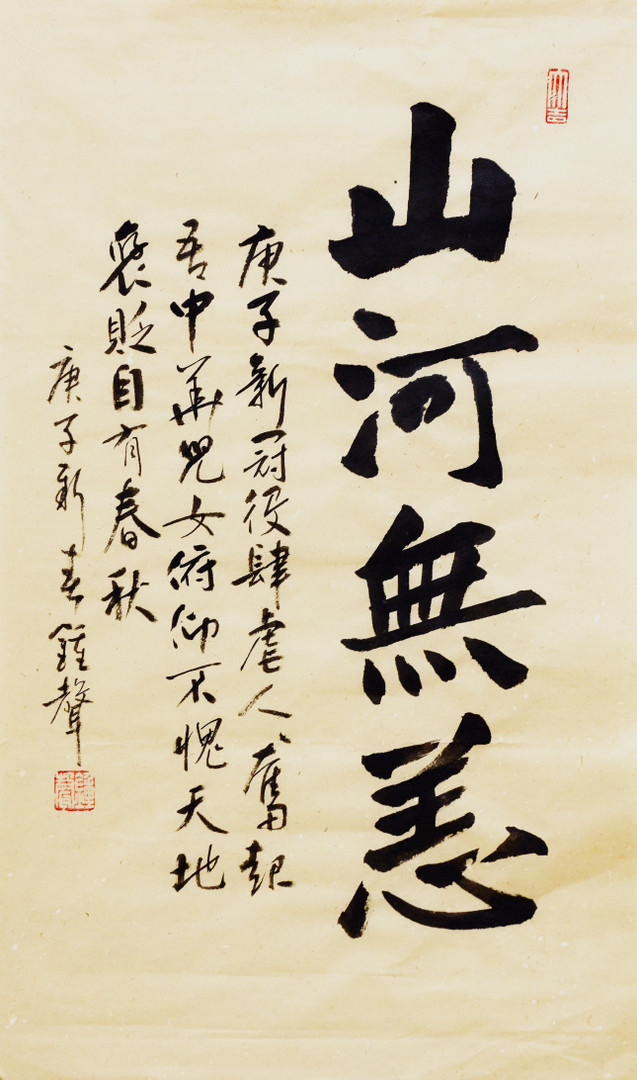 山河無恙
庚子新冠役肆虐人人奮起
吾中華兒女俯仰不愧天地
褒貶自有春秋
庚子新春鍾聲